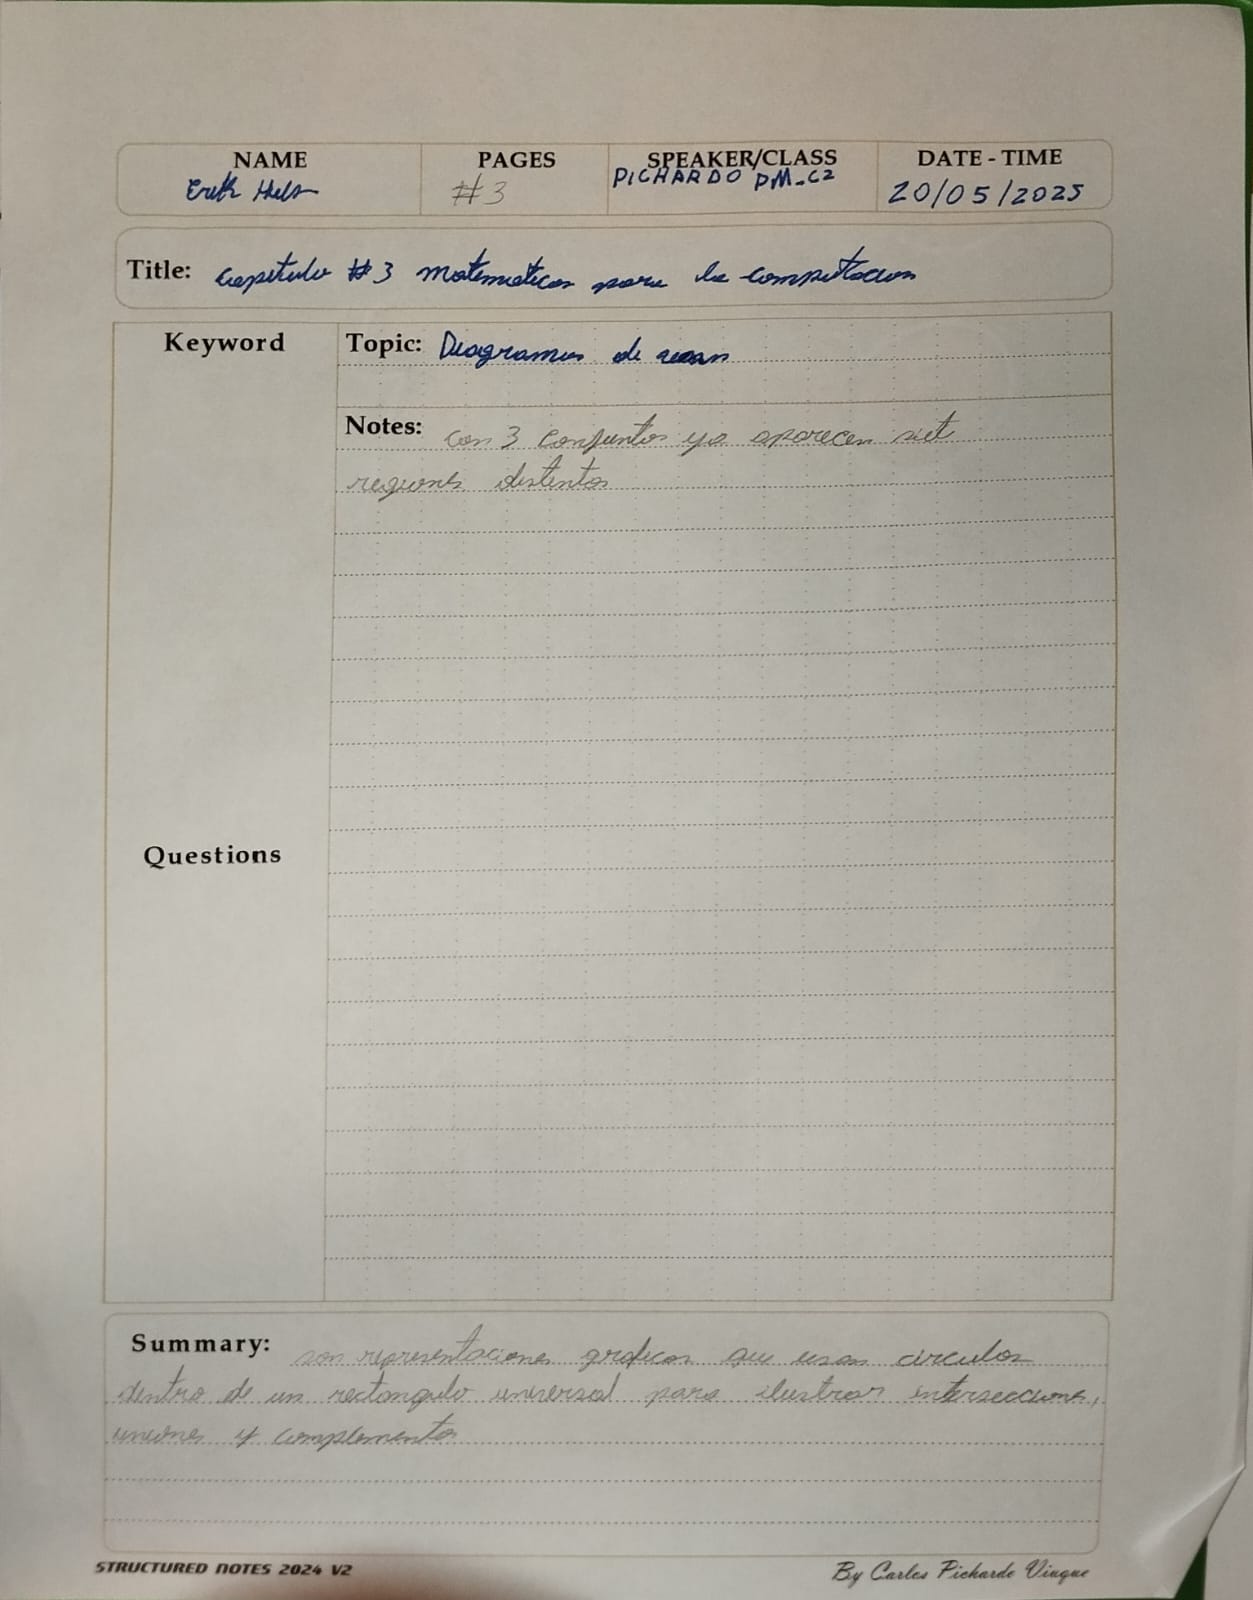 NAME PAGES SPEAKER/CLASS DATE - TIME
Erik #3 PICHARDO PM-C2 20/05/2025
Title: Capitulo #3 Matematicas para la computacion
Keyword
Topic: Diagramas de
Notes: con 3 conjuntos ya aparecen siet
regiones distintas
Questions
Summary: son representaciones graficas que usan circulos
dentro de un rectangulo universal para ilustrar intersecciones,
uniones y complementos
STRUCTURED NOTES 2024 V2
By Carlos Pichardo Viuque